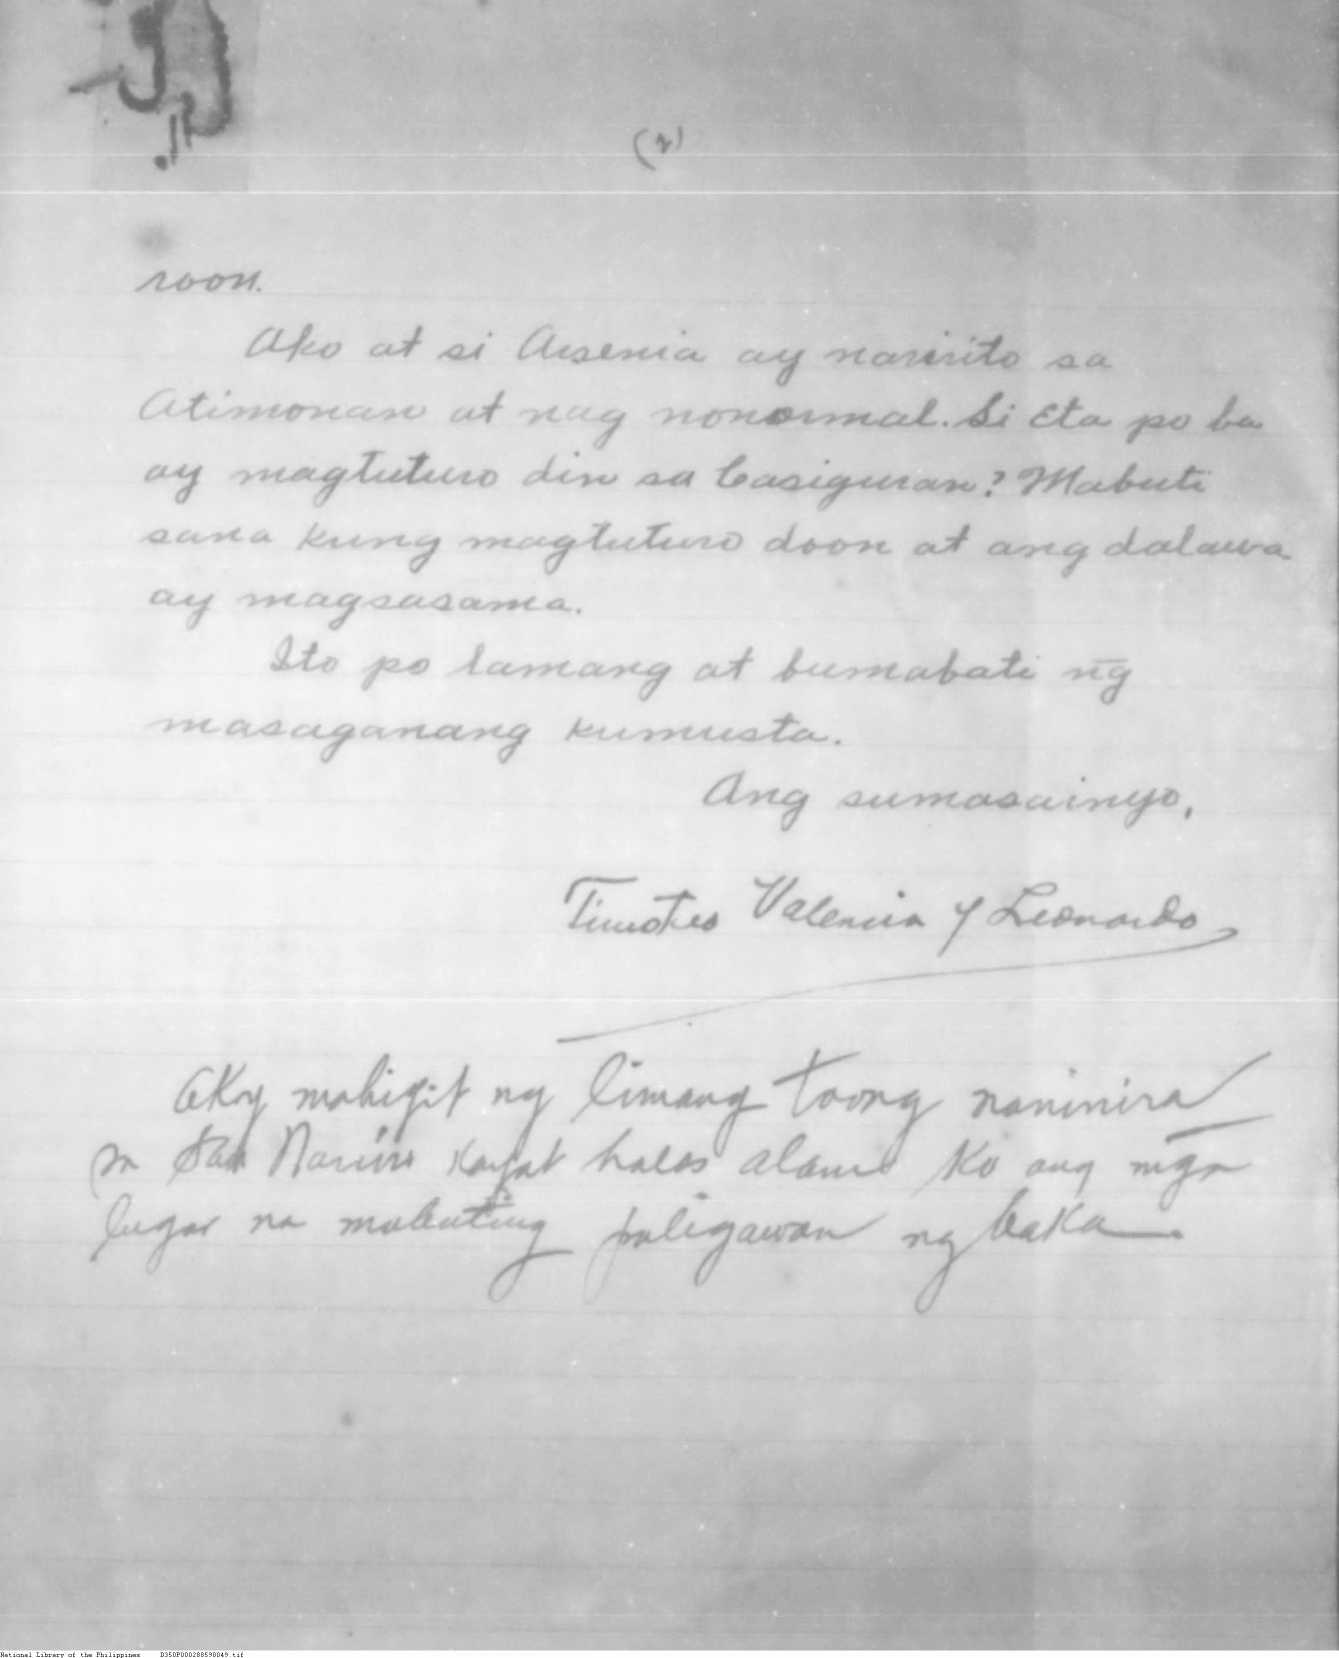 (2)
roon.
Ako at si Arsenia ay naririto sa
Atimonan at nag nonormal. Si Eta po ba
ay magtuturo din sa Casiguran? Mabuti
sana kung magtuturo doon at ang dalawa
ay magsasama.
Ito po lamang at bumabati n̄g
masaganang kumusta.
Ang sumasainyo,
Timoteo Valencia y Leonardo
Akoy mahigit ng limang taong naninira
sa San Narciso kayat halos alam ko ang mḡa
lugar na mabuting paligawan ng baka.
National Library of the Philippines D350P000288598049.tif